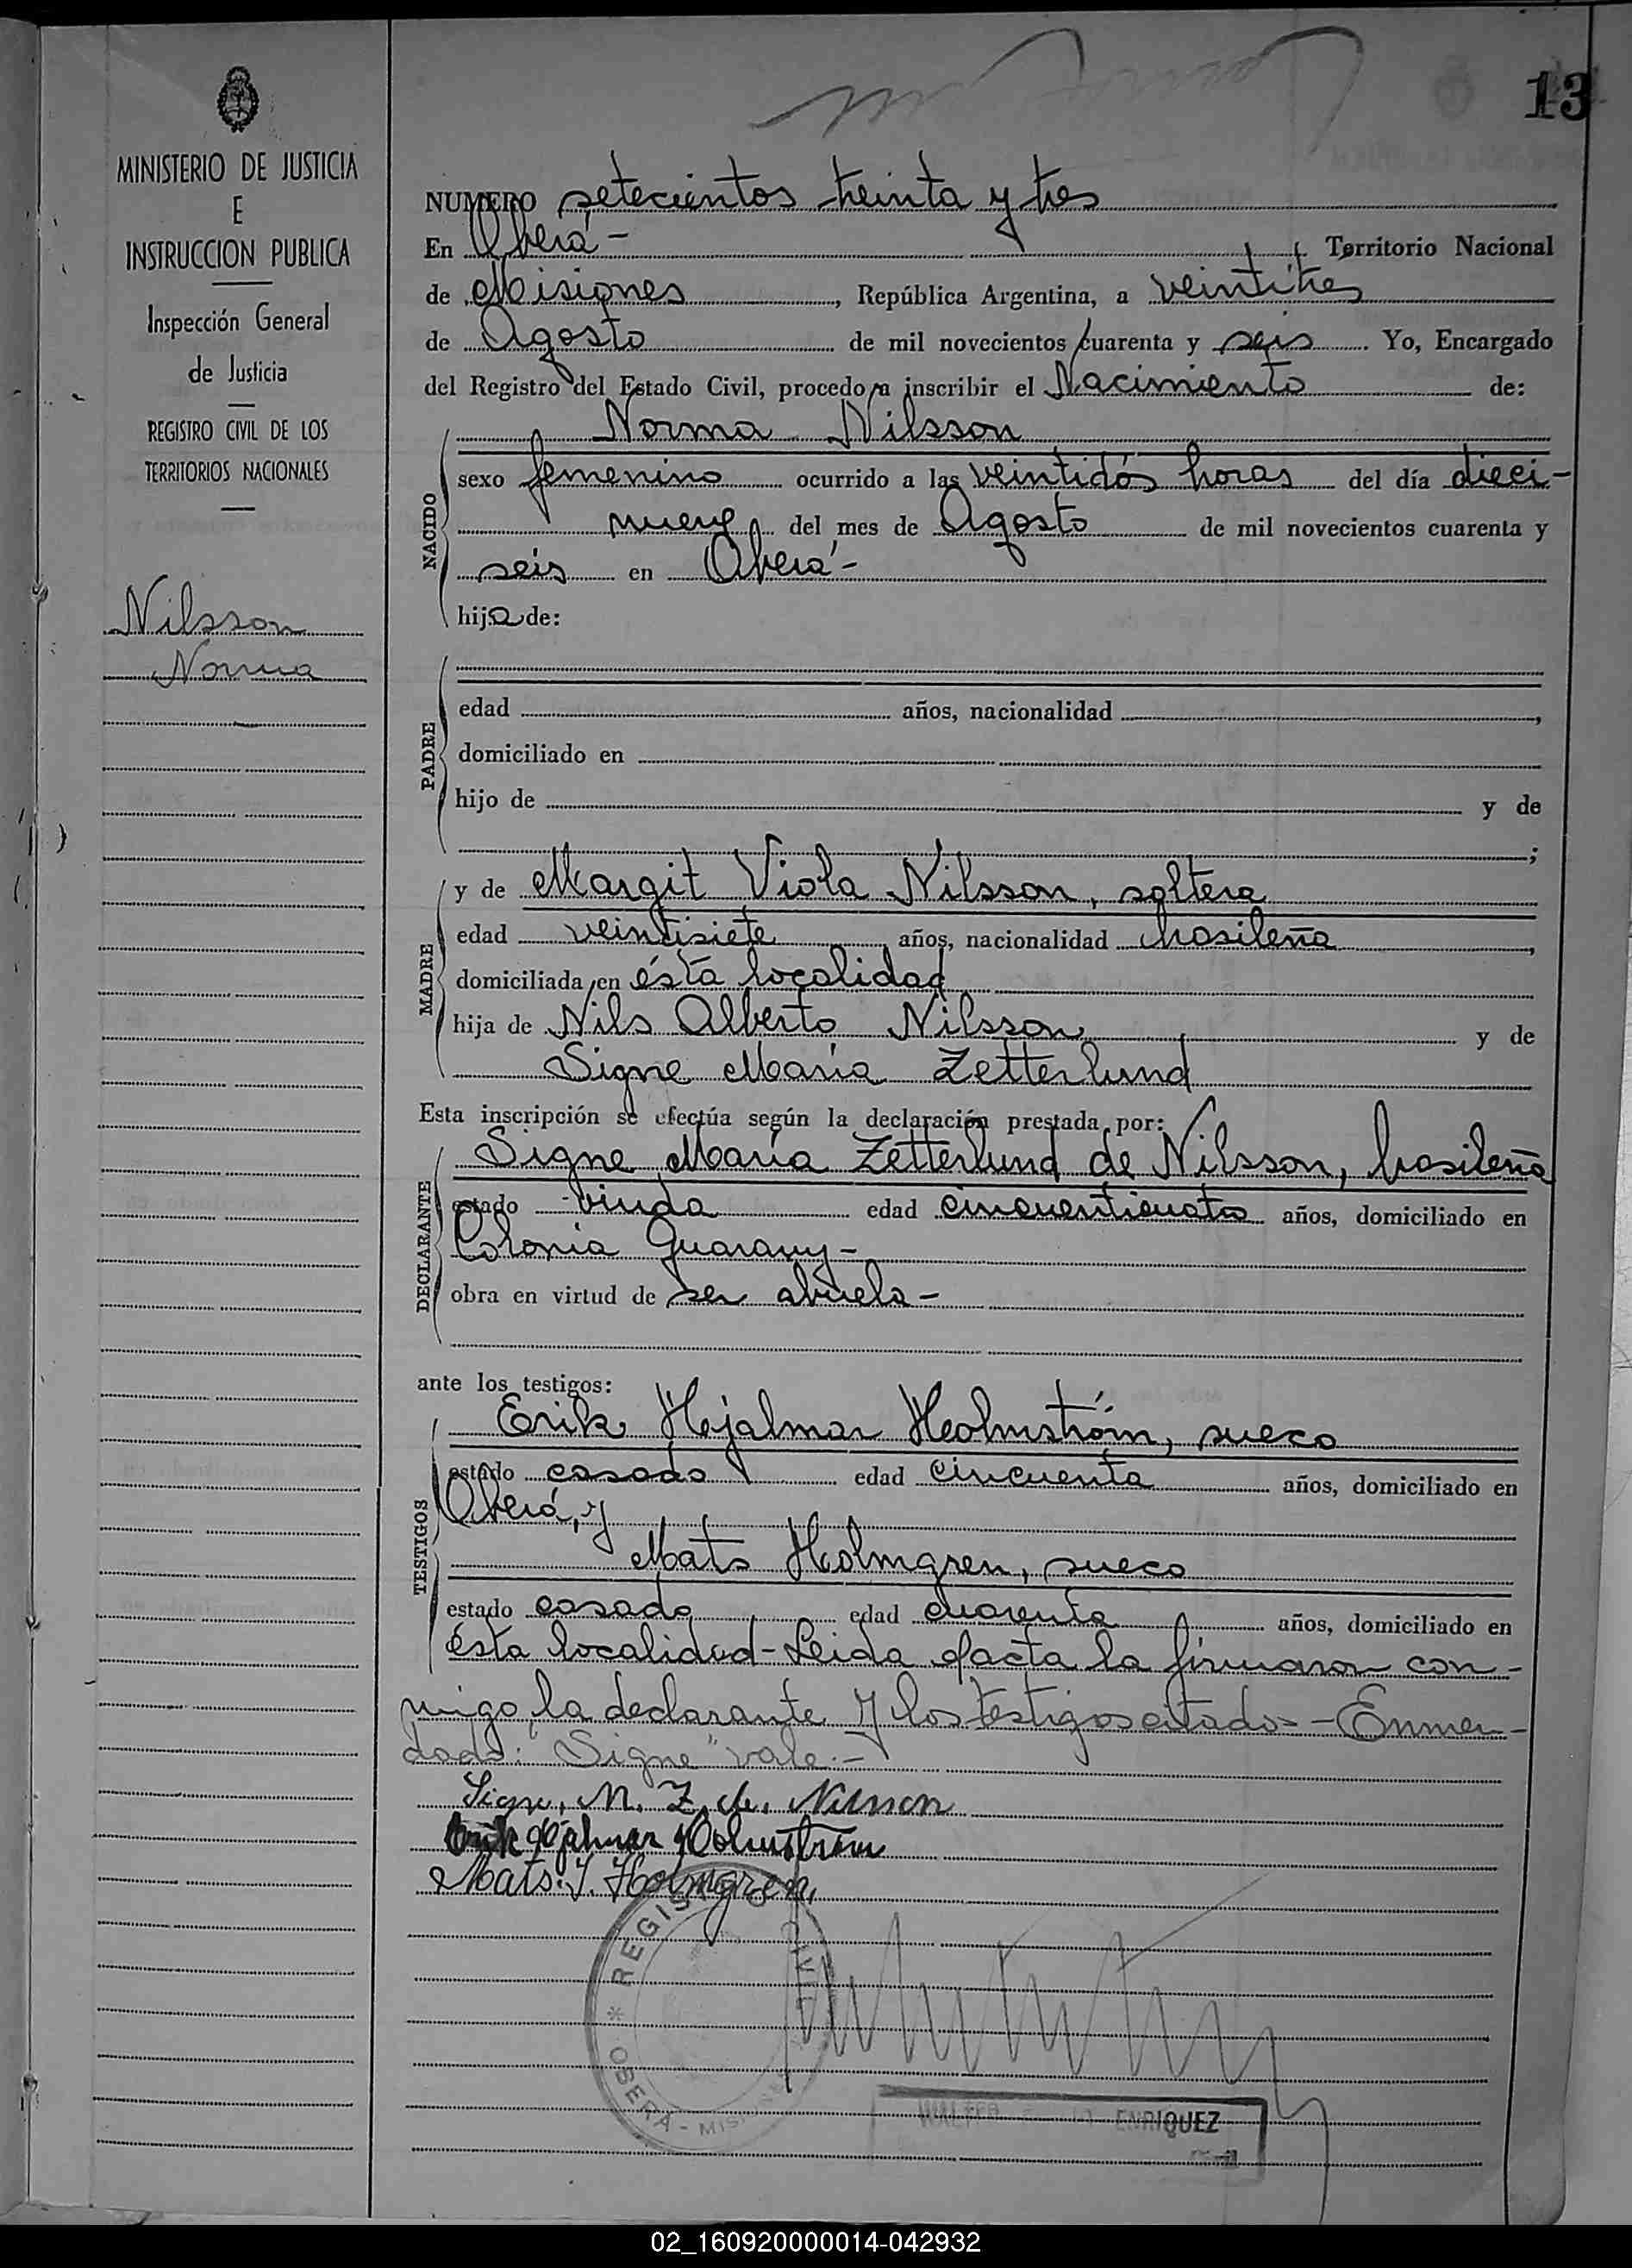 13
MINISTERIO DE JUSTICIA
E
INSTRUCCION PUBLICA
Inspección General
de Justicia
REGISTRO CIVIL DE LOS
TERRITORIOS NACIONALES
Nilsson
Norma
NUMERO setecientos treinta y tres
En Oberá- Territorio Nacional
de Misiones, República Argentina, a veintitres
de Agosto de mil novecientos cuarenta y seis. Yo, Encargado
del Registro del Estado Civil, procedo a inscribir el Nacimiento de:
NACIDO
Norma Nilsson
sexo femenino ocurrido a las veintidós horas del día dieci-
nueve del mes de Agosto de mil novecientos cuarenta y
seis en Oberá-
hija de:
PADRE
edad años, nacionalidad ,
domiciliado en
hijo de y de
;
MADRE
y de Margit Viola Nilsson, soltera
edad veintisiete años, nacionalidad brasileña,
domiciliada en ésta localidad
hija de Nils Alberto Nilsson y de
Signe María Zetterlund
Esta inscripción se efectúa según la declaración prestada por:
DECLARANTE
Signe María Zetterlund de Nilsson, brasileña
estado viuda edad cincuenticuatro años, domiciliado en
Colonia Guarany-
obra en virtud de ser abuela-
ante los testigos:
TESTIGOS
Erik Hejalmar Holmström, sueco
estado casado edad cincuenta años, domiciliado en
Oberá, y
Mats Holmgren, sueco
estado casado edad cuarenta años, domiciliado en
ésta localidad-Leida el acta la firmaron con-
migo, la declarante y los testigos citados-Enmen-
dado: "Signe" vale.-
Signe, M. Z. de. Nilsson
Erik Hjalmar Holmström
Mats. J. Holmgren,
REGISTRO CIVIL
* OBERA - MISIONES
WALTER ENRIQUEZ
02_160920000014-042932